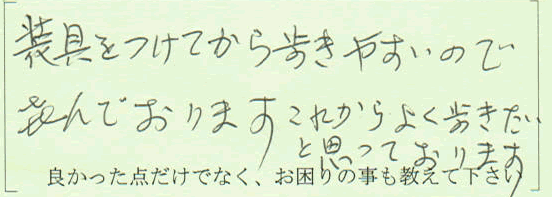 装具をつけてから歩きやすいので
喜んでおります これからよく歩きたい
と思っております
良かった点だけでなく、お困りの事も教えて下さい